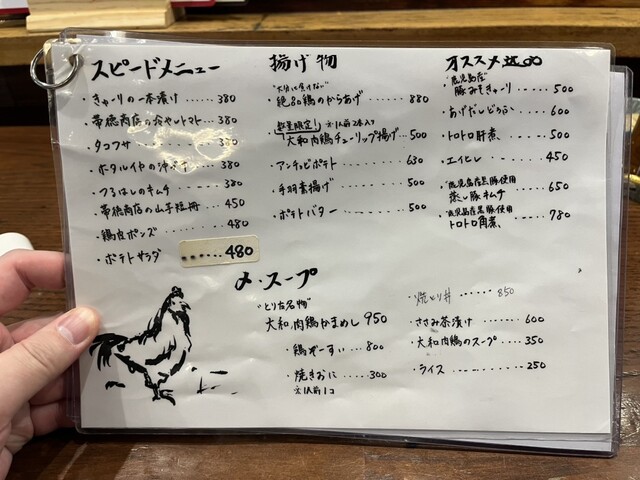 スピードメニュー
・きゅーりの一本漬け ...... 380
・帯徳商店の冷やしトマト... 380
・タコワサ ------ 350
・ホタルイカの沖漬け 380
・つるはしのキムチ ----- 380
・帯徳商店の山芋短冊 ---- 450
・鶏皮ポンズ ------ 480
・ポテトサラダ ...... 480
揚げ物
"大分に負けない"
・絶品鶏のからあげ ---- 880
数量限定! ※1人前2本入り
大和肉鶏チューリップ揚げ... 500
・アンチョビポテト ------ 630
・手羽素揚げ ------ 500
・ポテトバター ------ 500
オススメ逸品
"鹿児島産"
・豚みそきゅーり ---- 500
・あげだしどうふ ------ 600
・トロトロ肝煮 ------ 500
・エイヒレ ------ 450
・鹿児島産黒豚使用
蒸し豚キムチ ---- 650
・鹿児島産黒豚使用
トロトロ角煮 ---- 780
〆・スープ
"とり古名物"
大和肉鶏かまめし 950
・鶏ぞーすい ---- 800
・焼きおに ------ 300
※1人前1コ
・焼とり丼 ...... 850
・ささみ茶漬け ------ 600
・大和肉鶏のスープ .... 350
・ライス ---------- 250